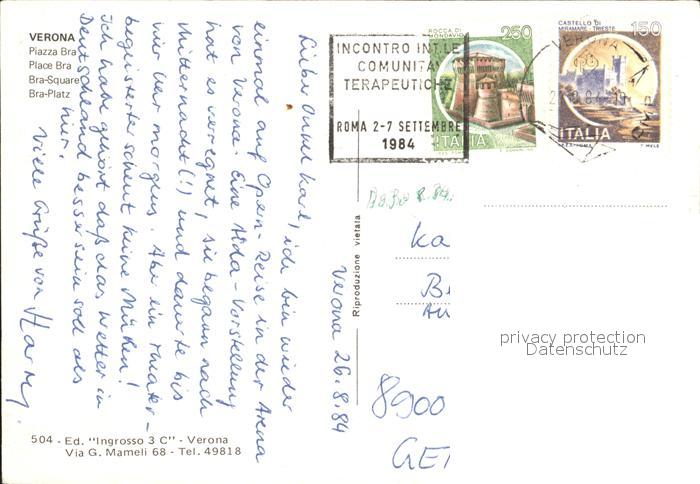 VERONA
Piazza Bra
Place Bra
Bra-Square
Bra-Platz
Lieber Onkel Karl, ich bin wieder
einmal auf Opern-Reise in der Arena
von Verona. Eine Aida-Vorstellung
hat es verregnet, sie begann nach
Mitternacht(!) und dauerte bis
vier Uhr morgens. Aber ein Theater-
begeisterter scheut keine Mühen!
Ich habe gehört daß das Wetter in
Deutschland besser sein soll als
hier.
Viele Grüße von Harry
Verona 26.8.84
504 - Ed. "Ingrosso 3 C" - Verona
Via G. Mameli 68 - Tel. 49818
Riproduzione vietata
INCONTRO INT.LE
COMUNITA'
TERAPEUTICHE
ROMA 2-7 SETTEMBRE
1984
ROCCA DI
MONDAVIO
250
ITALIA
CASTELLO DI
MIRAMARE - TRIESTE
150
ITALIA
T. MELE
VERONA
Ka
B
8900
GE
privacy protection
Datenschutz